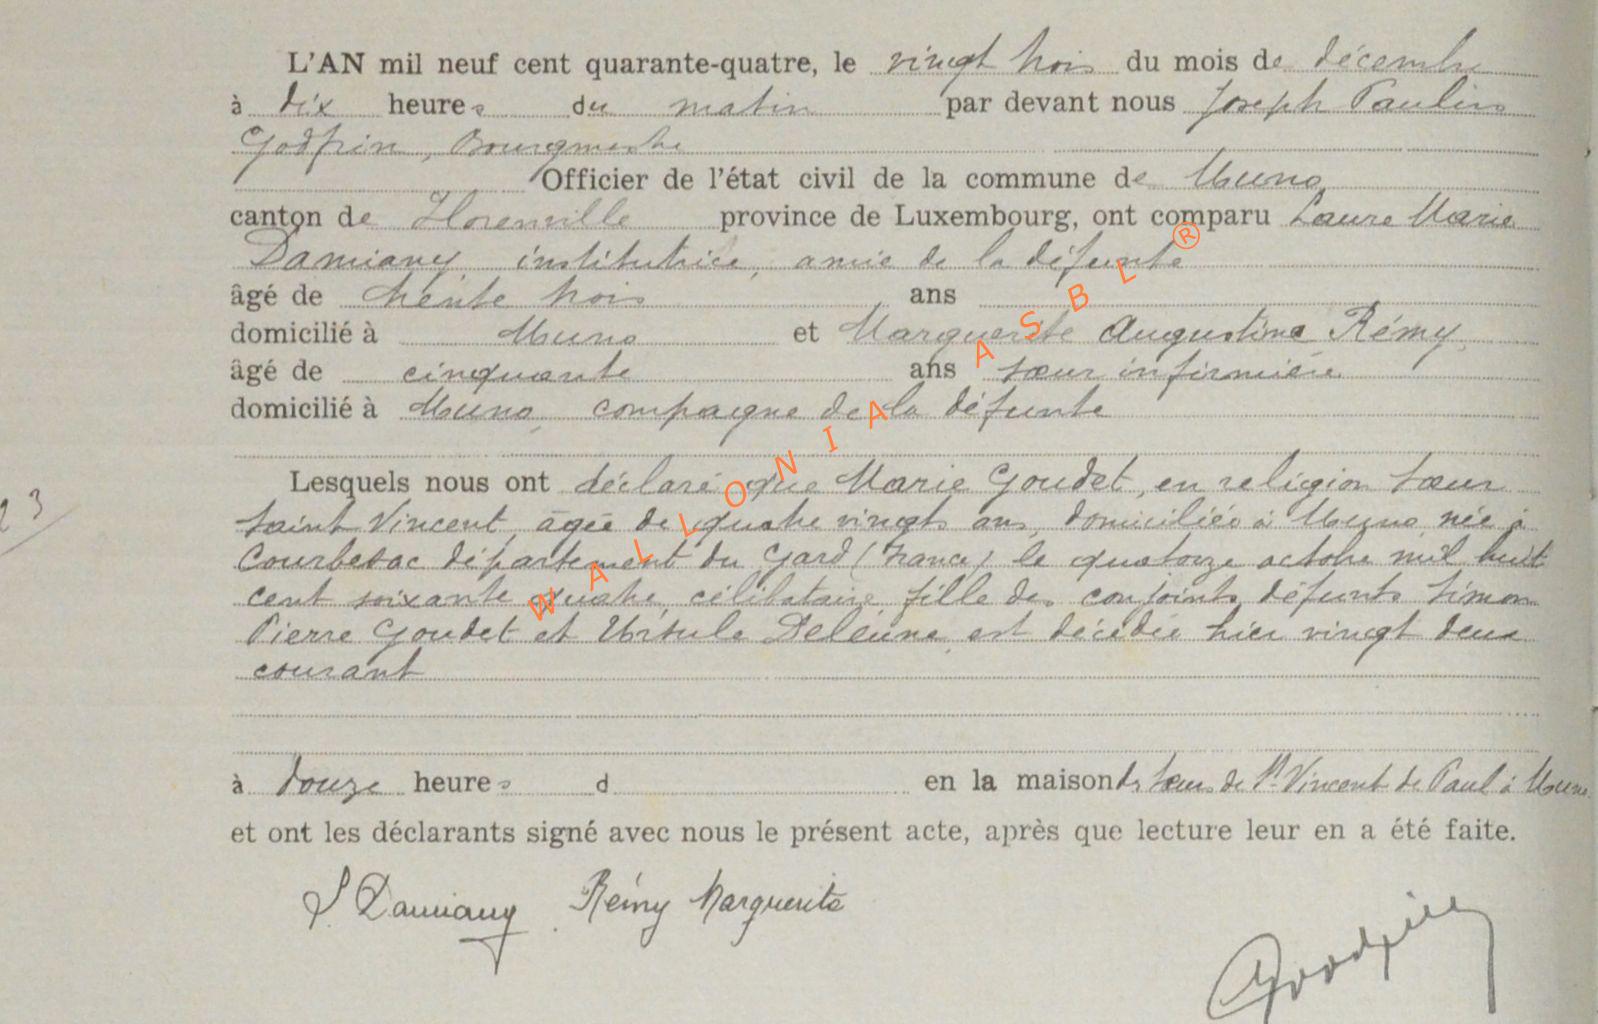 L'AN mil neuf cent quarante-quatre, le vingt trois du mois de décembre
à dix heures du matin par devant nous Joseph Paulin
Godfrin, Bourgmestre
Officier de l'état civil de la commune de Muno
canton de Florenville province de Luxembourg, ont comparu Laure Marie
Damiany institutrice, amie de la défunte
âgé de trente trois ans
domicilié à Muno et Marguerite Augustine Rémy
âgé de cinquante ans sœur infirmière
domicilié à Muno, compagne de la défunte
Lesquels nous ont déclaré que Marie Goudet, en religion sœur
Saint Vincent, âgée de quatre vingts ans, domiciliée à Muno née à
Courbessac département du Gard (France) le quatorze octobre mil huit
cent soixante quatre, célibataire, fille des conjoints défunts Simon
Pierre Goudet et Ursule Deleune, est décédée hier vingt deux
courant
à douze heures d en la maison des sœurs de St Vincent de Paul à Muno
et ont les déclarants signé avec nous le présent acte, après que lecture leur en a été faite.
L. Damiany Rémy Marguerite
Godfrin
23
WALLONIA ASBL ®